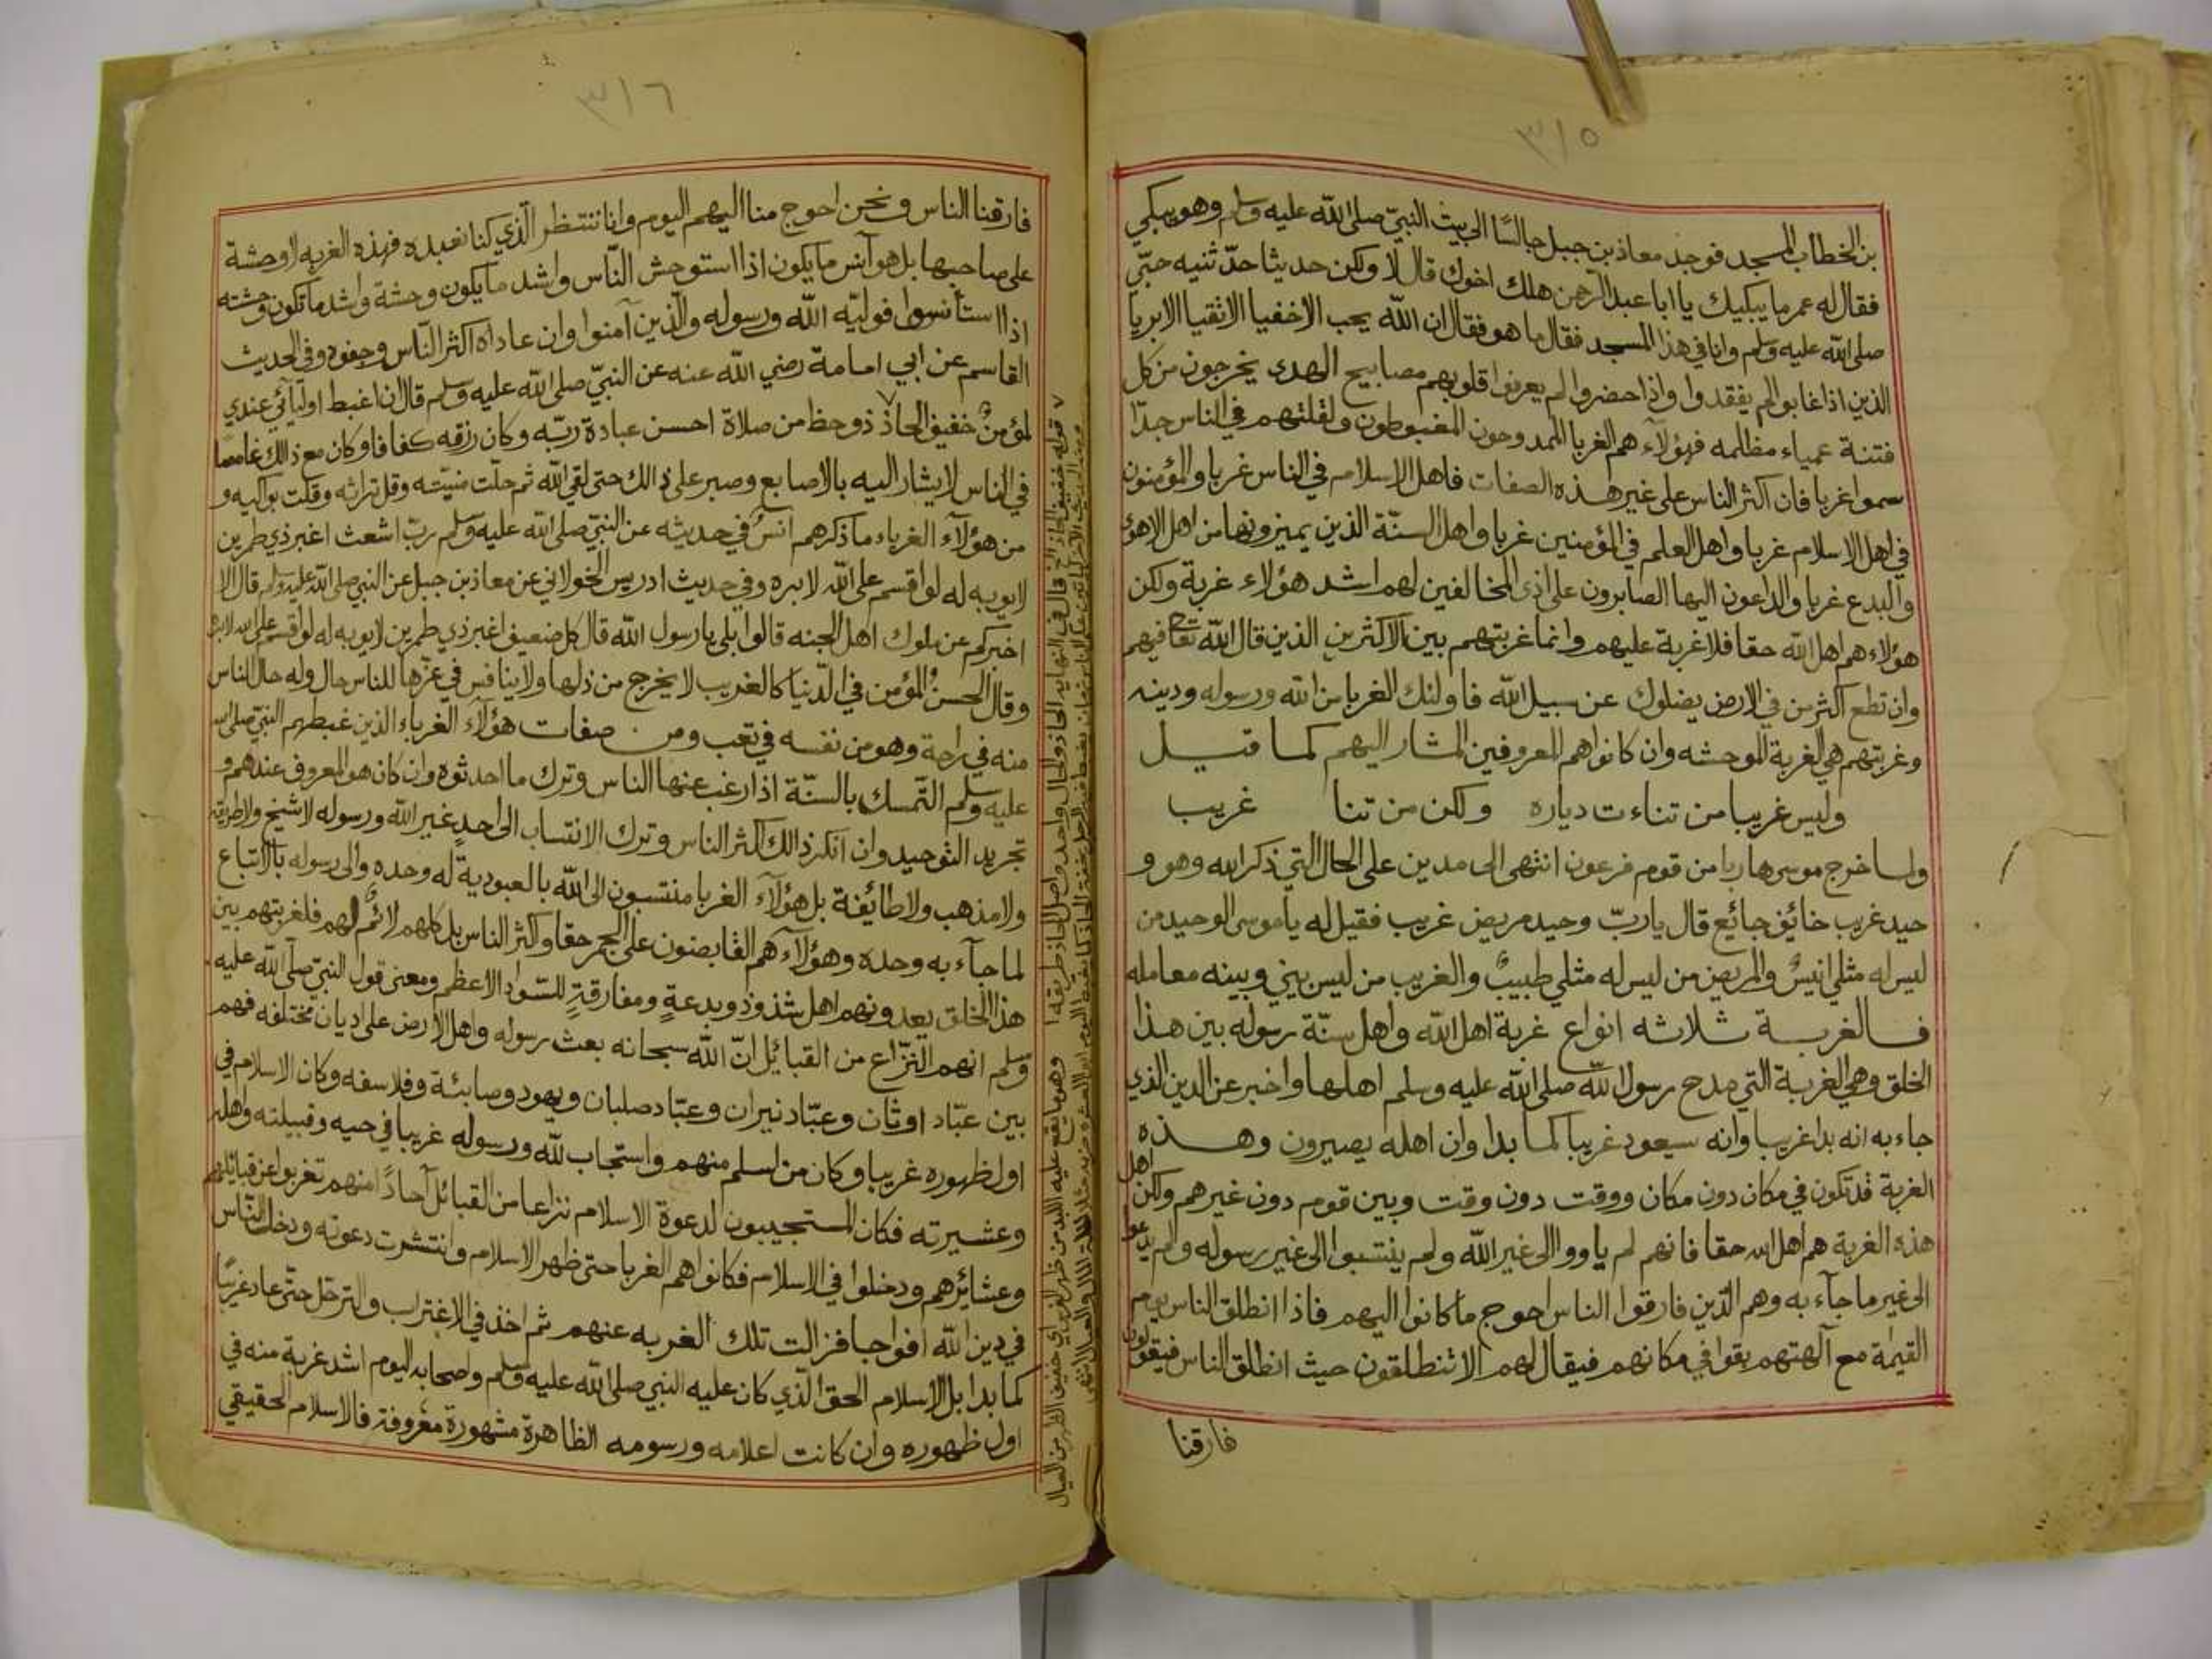 ٣١٥
بن الخطاب المسجد فوجد معاذ بن جبل جالسًا الى بيت النبيّ صلى الله عليه وسلم وهو يبكي
فقال له عمر ما يبكيك يا ابا عبد الرحمن هلك اخوك قال لا ولكن حديثا حدّثنيه حبّي
صلى الله عليه وسلم وانا في هذا المسجد فقال ما هو فقال ان الله يحب الاخفيا الاتقيا الابريا
الذين اذا غابوا لم يفقدوا واذا حضروا لم يعرفوا قلوبهم مصابيح الهدى يخرجون من كل
فتنة عمياء مظلمه فهؤلآء هم الغربا الممدوحون المغبوطون ولقلتهم في الناس جدّا
سموا غربا فان اكثر الناس على غير هذه الصفات فاهل الاسلام في الناس غربا والمؤمنون
في اهل الاسلام غربا واهل العلم في المؤمنين غربا واهل السنّة الذين يميزونها من اهل الاهؤ
والبدع غربا والداعون اليها الصابرون على اذى المخالفين لهم اشد هؤلاء غربة ولكن
هؤلاء هم اهل الله حقا فلا غربة عليهم وانما غربتهم بين الاكثرين الذين قال الله تعالى فيهم
وان تطع اكثر من في الارض يضلوك عن سبيل الله فاولئك الغربا من الله ورسوله ودينه
وغربتهم هي الغربة الموحشه وان كانوا هم المعروفين المشار اليهم كما قيل
وليس غريبا من تناءت دياره ولكن من تنا غريب
ولما خرج موسى هاربا من قوم فرعون انتهى الى مدين على الحال التي ذكر الله وهو و
حيد غريب خائف جائع قال يا ربّ وحيد مريض غريب فقيل له يا موسى الوحيد من
ليس له مثلي انيسٌ والمريض من ليس له مثلي طبيبٌ والغريب من ليس بيني وبينه معامله
فالغربة ثلاثه انواع غربة اهل الله واهل سنّة رسوله بين هذا
الخلق وهي الغربة التي مدح رسول الله صلى الله عليه وسلم اهلها واخبر عن الدين الذي
جاء به انه بدا غريبا وانه سيعود غريبا كما بدا وان اهله يصيرون وهذه
الغربة قد تكون في مكان دون مكان ووقت دون وقت وبين قوم دون غيرهم ولكن اهل
هذه الغربة هم اهل الله حقا فانهم لم ياووا الى غير الله ولم ينتسبوا الى غير رسوله ولم يدعوا
الى غير ما جآء به وهم الذين فارقوا الناس احوج ما كانوا اليهم فاذا انطلق الناس يوم
القيٰمة مع آلهتهم بقوا في مكانهم فيقال لهم الا تنطلقون حيث انطلق الناس فيقولون
فارقنا
٣١٦
فارقنا الناس ونحن احوج منا اليهم اليوم وانا ننتظر الّذي كنا نعبده فهذه الغربه لا وحشة
على صاحبها بل هو آنس ما يكون اذا استوحش النّاس واشد ما يكون وحشة واشد ما تكون وحشته
اذا استأنسوا فوليّه الله ورسوله والّذين آمنوا وان عاداه اكثر النّاس وجفوه وفي الحديث
القاسم عن ابي امامة رضي الله عنه عن النبيّ صلى الله عليه وسلم قال ان اغبط اوليآئي عندي
لمؤمنٌ خفيف الحاذ ذو حظ من صلاة احسن عبادة ربّه وكان رزقه كفافا وكان مع ذالك غامضا
في الناس لا يشار اليه بالاصابع وصبر على ذالك حتى لقي الله ثم حلّت منيّته وقل تراثه وقلت بواكيه و
من هؤلآء الغرباء ما ذكرهم انسٌ في حديثه عن النبيّ صلى الله عليه وسلم ربّ اشعث اغبر ذي طمرين
لا يوبه له لو اقسم على الله لابره وفي حديث ادريس الخولاني عن معاذ بن جبل عن النبي صلى الله عليه وسلم قال الا
اخبركم عن ملوك اهل الجنه قالوا بلى يا رسول الله قال كل ضعيف اغبر ذي طمرين لا يوبه له لو اقسم على الله لابره
وقال الحسنُ المؤمن في الدّنيا كالغريب لا يخرج من ذلها ولا ينافس في عزّها للناس حال وله حال الناس
منه في راحة وهو من نفسه في تعب ومن صفات هؤلآء الغرباء الذين غبطهم النبيّ صلى الله
عليه وسلم التّمسك بالسنّة اذا رغب عنها الناس وترك ما احدثوه وان كان هو المعروف عندهم و
تجريد التوحيد وان انكر ذالك اكثر الناس وترك الانتساب الى احدٍ غير الله ورسوله لا شيخ ولا طريقة
ولا مذهب ولا طائفة بل هؤلآء الغربا منتسبون الى الله بالعبودية له وحده والى رسوله بالاتباع
لما جآء به وحده وهؤلآء هم القابضون على الجمر حقا واكثر الناس بل كلهم لائمٌ لهم فلغربتهم بين
هذا الخلق يعدونهم اهل شذوذ وبدعةٍ ومفارقةٍ للسّواد الاعظم ومعنى قول النبيّ صلّى الله عليه
وسلم انهم النزّاع من القبائل انّ الله سبحانه بعث رسوله واهل الارض على اديان مختلفه فهم
بين عبّاد اوثان وعبّاد نيران وعبّاد صلبان ويهود وصابئة وفلاسفه وكان الاسلام في
اول ظهوره غريبا وكان من اسلم منهم واستجاب لله ورسوله غريبا في حيه وقبيلته واهله
وعشيرته فكان المستجيبون لدعوة الاسلام نزاعا من القبائل آحادًا منهم تغربوا عن قبائلهم
وعشائرهم ودخلوا في الاسلام فكانوا هم الغربا حتى ظهر الاسلام وانتشرت دعوته ودخل النّاس
في دين الله افواجا فزالت تلك الغربه عنهم ثم اخذ في الاغتراب والترحّل حتّى عاد غريبًا
كما بدا بل الاسلام الحق الّذي كان عليه النبي صلى الله عليه وسلم وصحابه اليوم اشد غربة منه في
اول ظهوره وان كانت اعلامه ورسومه الظاهرة مشهورة معروفة فالاسلام الحقيقي
قوله خفيف الحاذ الخ قال في النهايه الحاذ والحال واحد واصل الحاذ طريقة وهو ما يقع عليه اللبد من ظهر الفرس اي خفيف الظهر من العيال